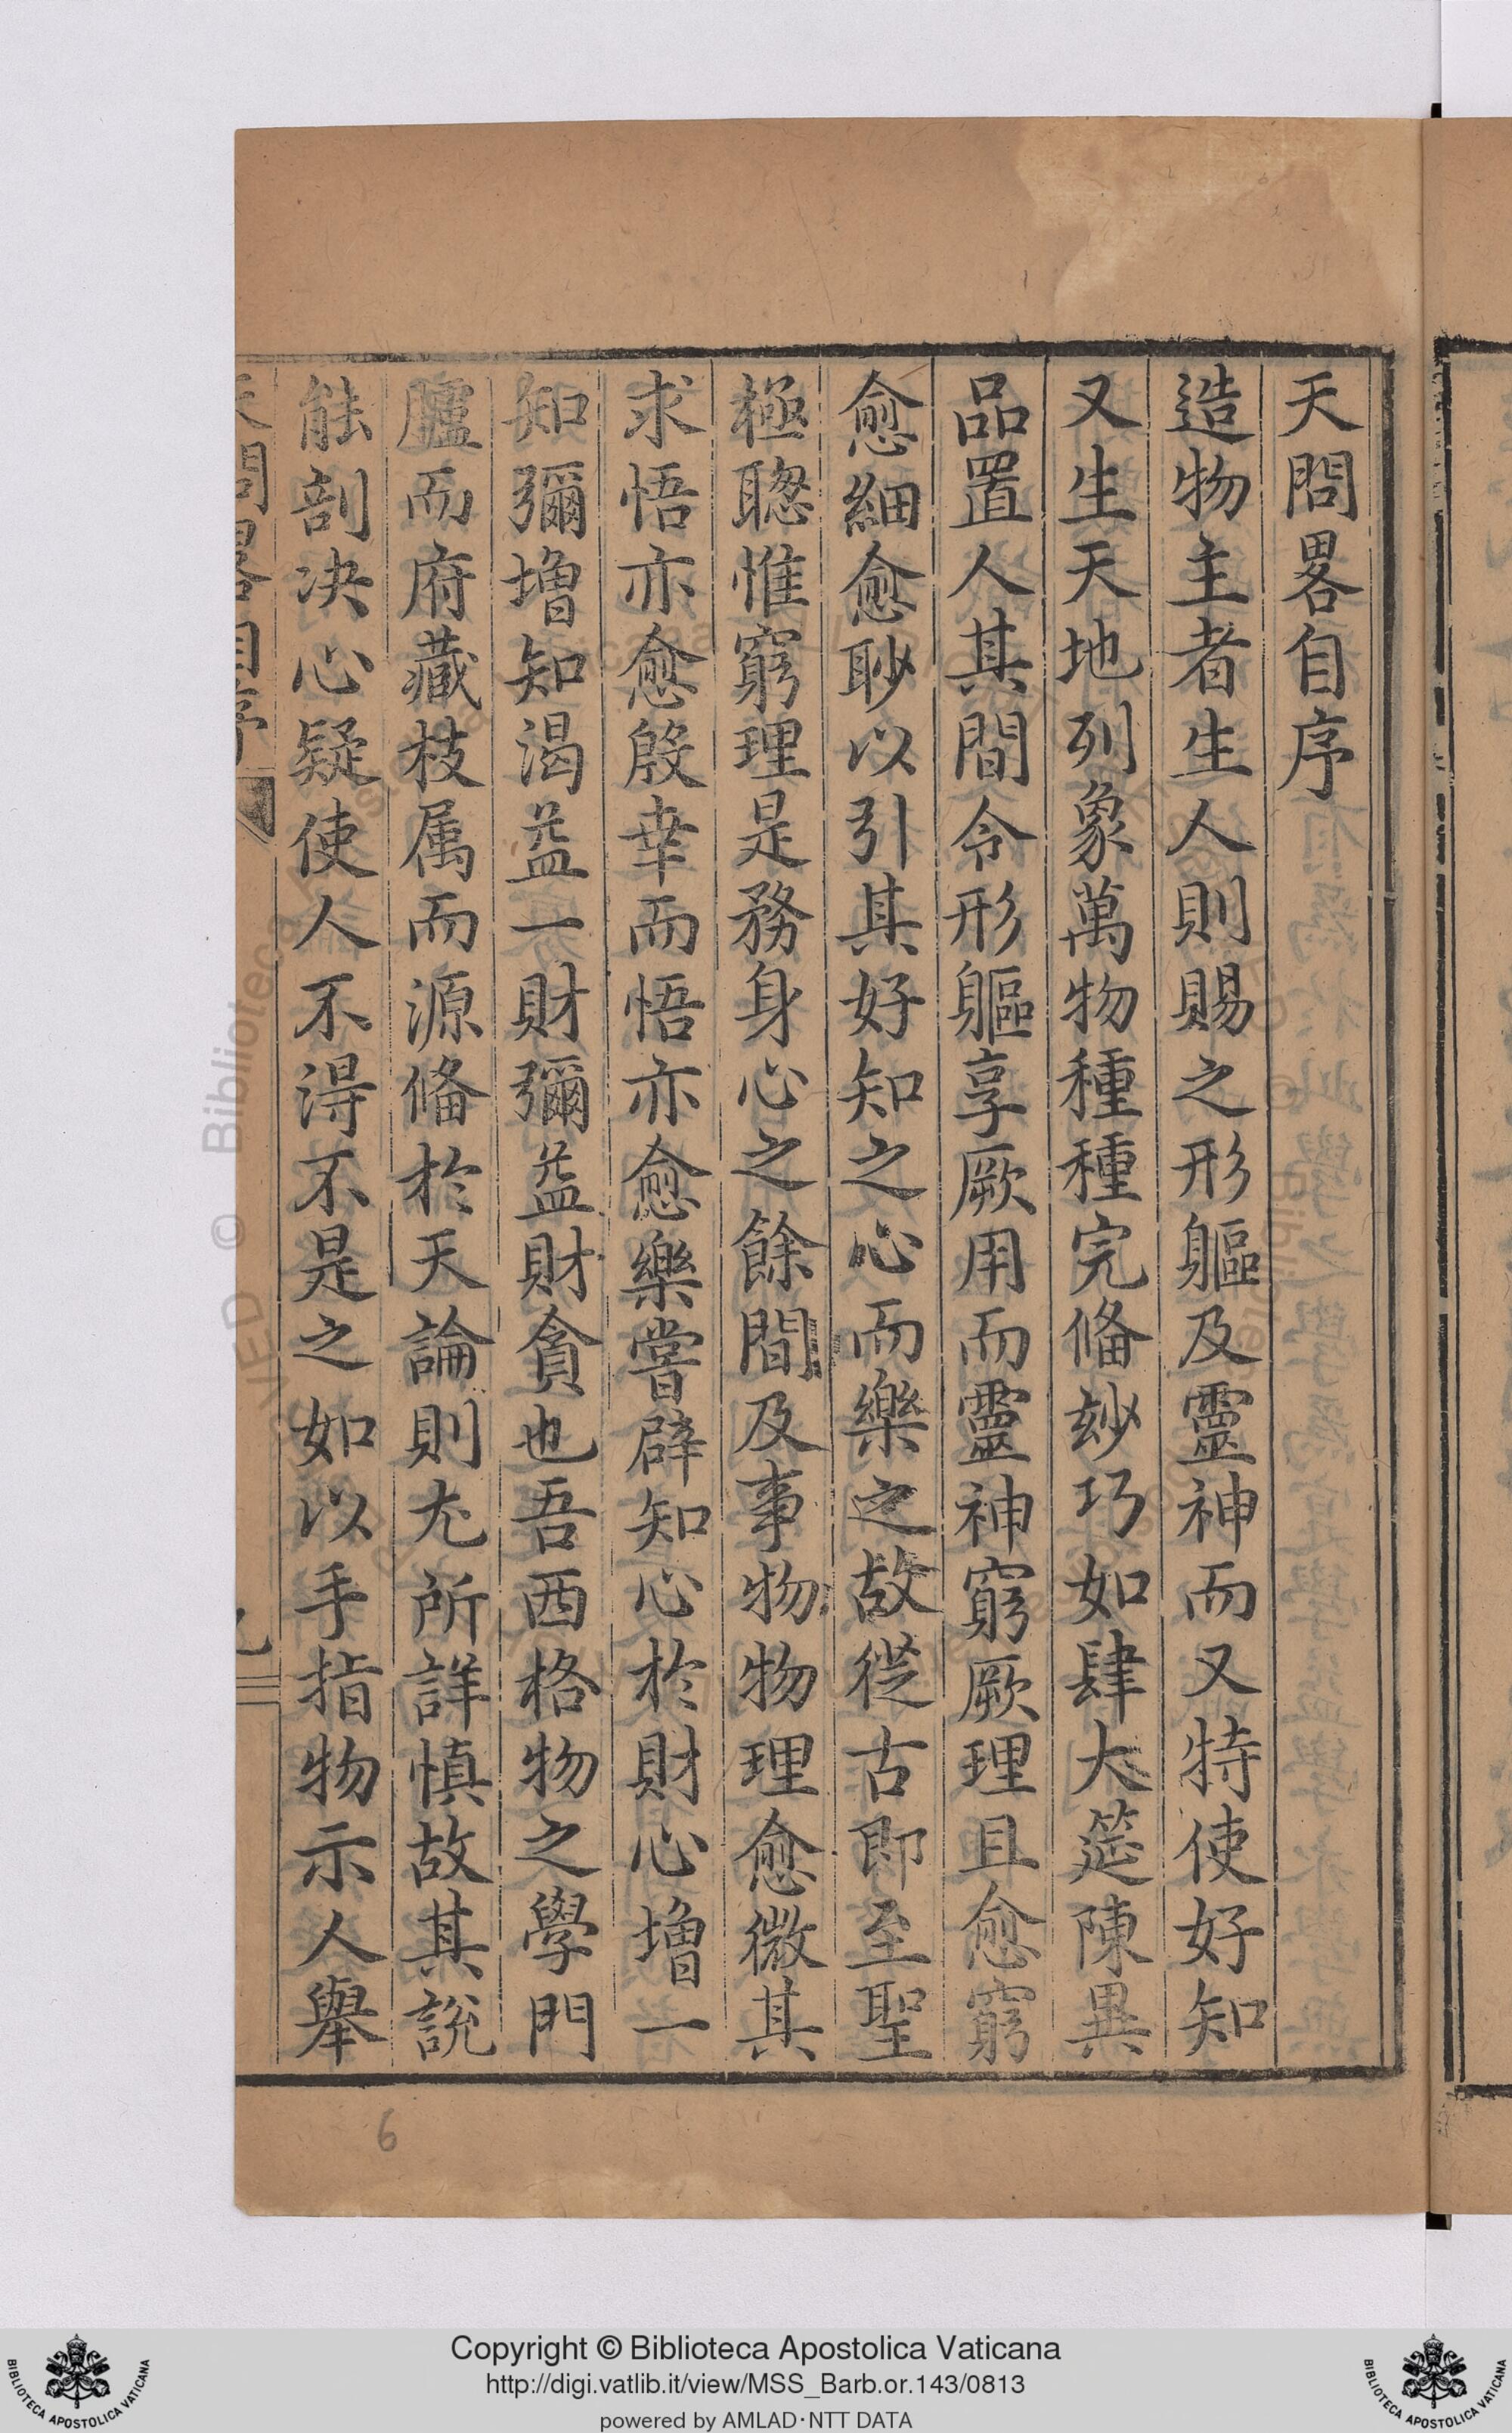 天問畧自序
造物主者生人則賜之形軀及靈神而又特使好知
又生天地列象萬物種種完備玅巧如肆大筵陳異
品置人其間令形軀享厥用而靈神窮厥理且愈窮
愈細愈眇以引其好知之心而樂之故從古即至聖
極聰惟窮理是務身心之餘間及事物物理愈微其
求悟亦愈殷幸而悟亦愈樂嘗辟知心於財心增一
知彌增知渴益一財彌益財貪也吾西格物之學門
臚而府藏枝属而源備於天論則尤所詳慎故其說
能剖决心疑使人不得不是之如以手指物示人舉
天問畧自序
6
Copyright © Biblioteca Apostolica Vaticana
http://digi.vatlib.it/view/MSS_Barb.or.143/0813
powered by AMLAD·NTT DATA
BIBLIOTECA APOSTOLICA VATICANA
BIBLIOTECA APOSTOLICA VATICANA